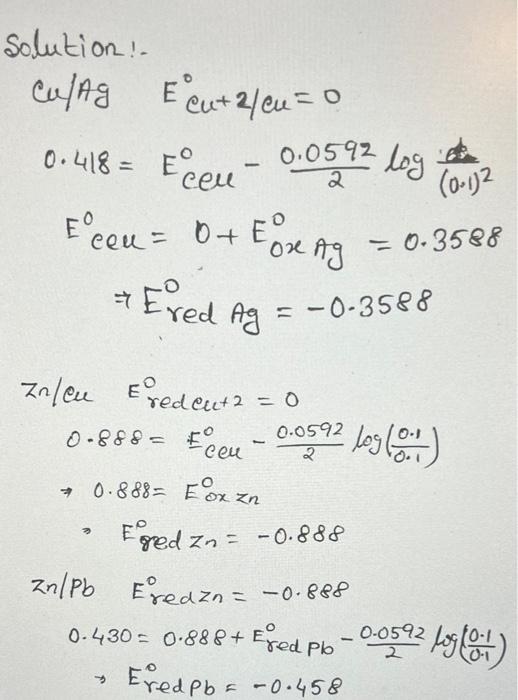 Solution :-
Cu/Ag E° Cu+2/Cu = 0
0.418 = E°cell - 0.0592/2 log /(0.1)²
E°cell = 0 + E°ox Ag = 0.3588
⇒ E°red Ag = -0.3588
Zn/Cu E°red Cu+2 = 0
0.888 = E°cell - 0.0592/2 log(0.1/0.1)
→ 0.888 = E°ox Zn
→ E°red Zn = -0.888
Zn/Pb E°red Zn = -0.888
0.430 = 0.888 + E°red Pb - 0.0592/2 log(0.1/0.1)
→ E°red Pb = -0.458